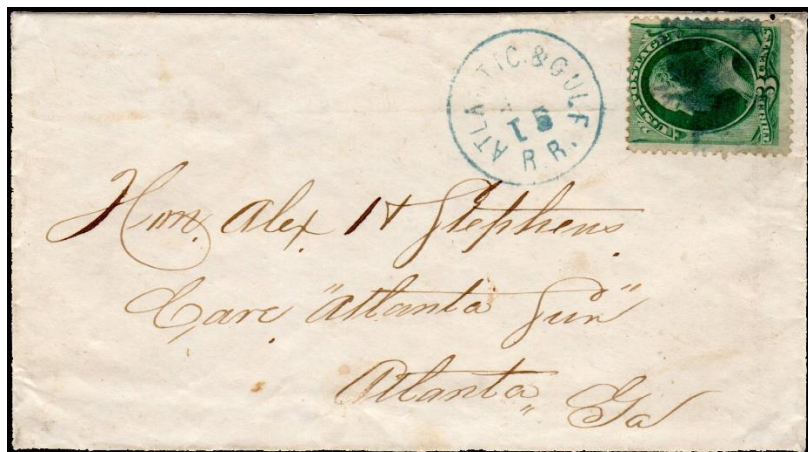 ATLANTIC & GULF R.R.
15
U.S. POSTAGE
THREE 3 CENTS
Hon. Alex H Stephens
Care "Atlanta Sun"
Atlanta, Ga